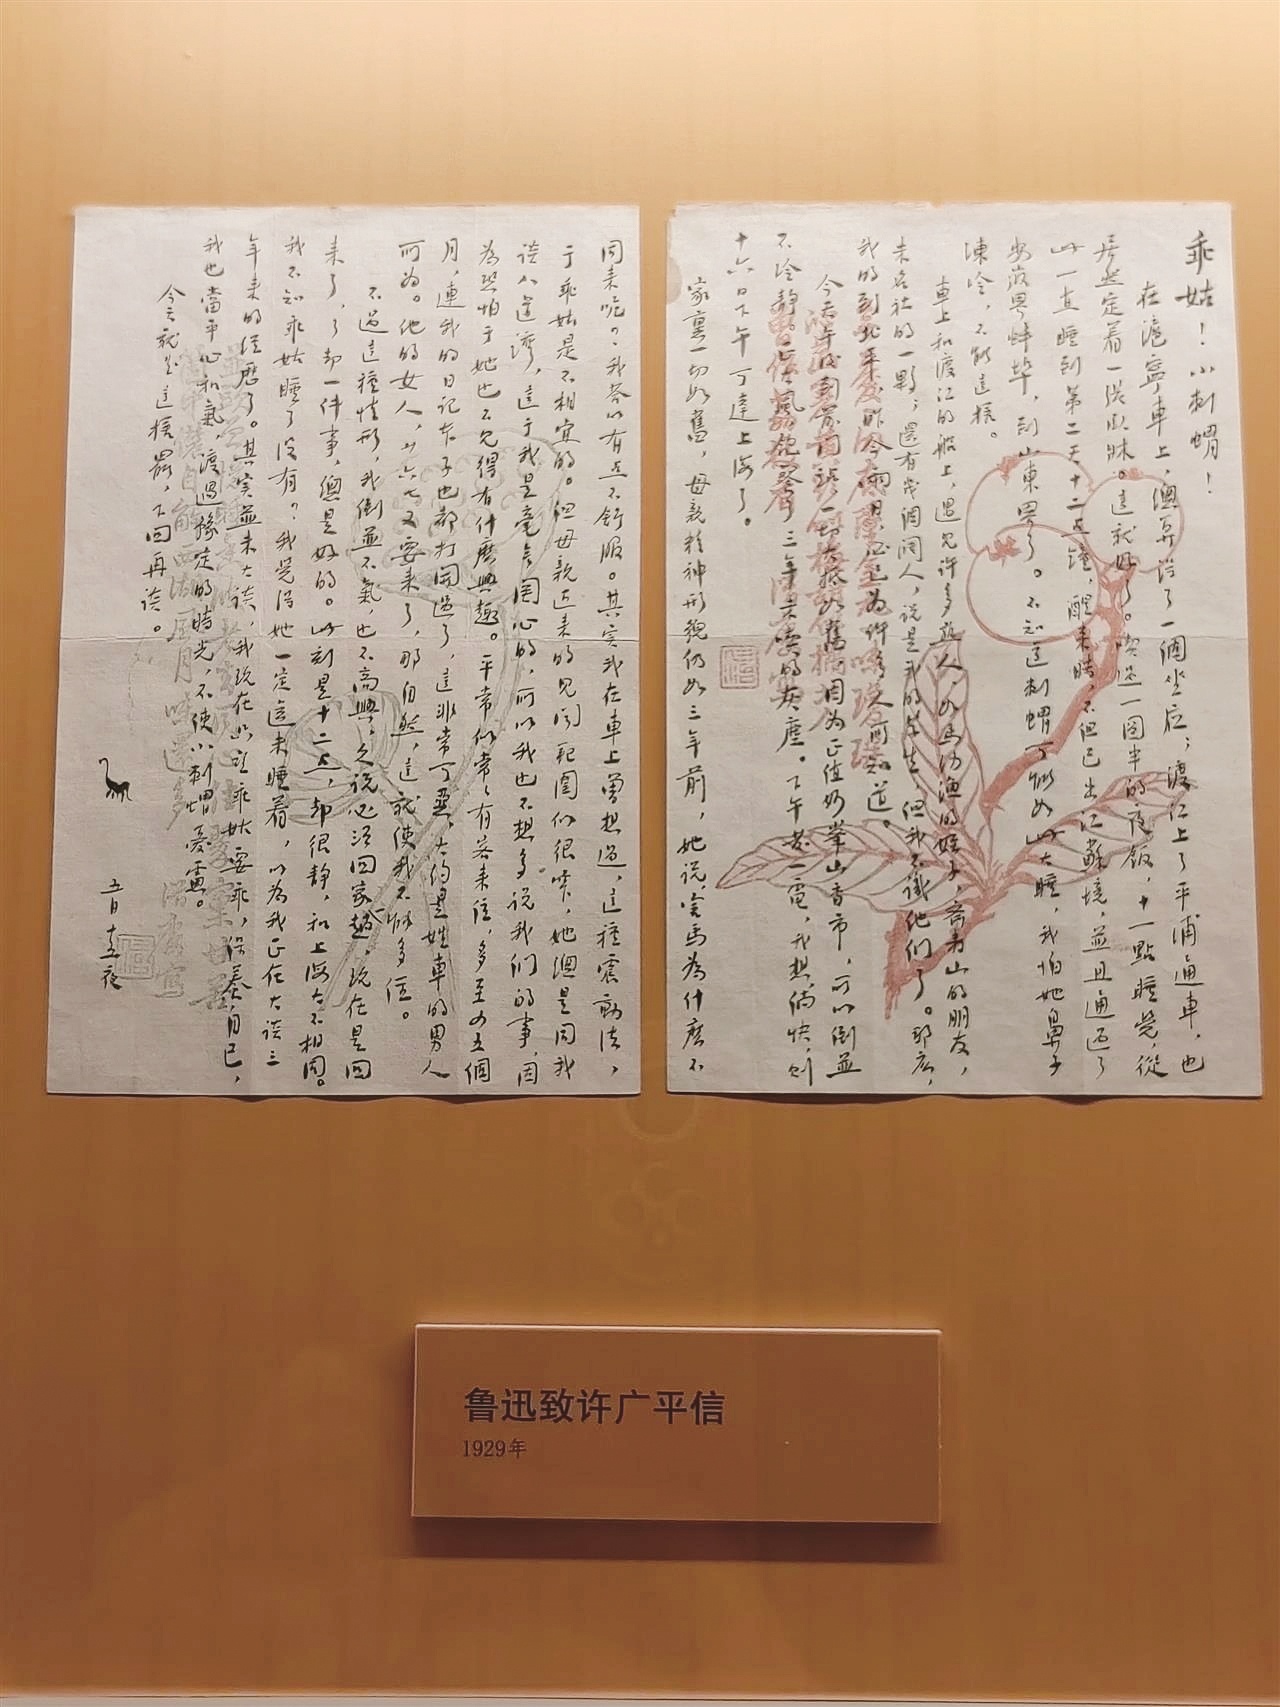 乖姑！小刺蝟！
在滬寧車上，總算得了一個坐位；渡江上了平浦通車，也
居然定着一張臥牀。這就好了。喫過一圓半的夜飯，十一點睡覺，從
此一直睡到第二天十二點鐘，醒來時，不但已出江蘇境，並且通過了
安徽界蚌埠，到山東界了。不知道刺蝟可能如此大睡，我怕她鼻子
凍冷，不能這樣。
車上和渡江的船上，遇見許多熟人，如馬幼漁的姪子，齊壽山的朋友，
未名社的一夥；還有幾個闊人，說是我的學生，但我不識他們了。那麼，
我的到北平，昨今兩日，必已為許多人所知道。
今天午後到前門站，一切大抵如舊，因為正值妙峯山香市，所以倒並
不冷靜。正大風，飽餐了三年未喫的灰塵。下午發一電，我想，倘快，則
十六日下午可達上海了。
家裏一切如舊，母親精神形貌仍如三年前，她說，害馬為什麼不
同來呢？我答以有点不舒服。其實我在車上曾想過，這種震動法，
于乖姑是不相宜的。但母親近來的見聞範圍似很窄，她總是同我
談八道灣，這于我是毫無關心的，所以我也不想多說我們的事，因
為恐怕于她也不見得有什麼興趣。平常似常常有客來住，多至四五個
月，連我的日記本子也都打開過了，這非常可惡，大約是姓車的男人
所為。他的女人，廿六七又要來了，那自然，這就使我不能多住。
不過這種情形，我倒並不氣，也不高興，久說必須回家一趟，現在是回
來了，了却一件事，總是好的。此刻是十二点，却很靜，和上海大不相同。
我不知乖姑睡了沒有？我覺得她一定還未睡着，以為我正在大談三
年來的經歷了。其实並未大談，我現在只望乖姑要乖，保養自己，
我也當平心和氣，渡過豫定的時光，不使小刺蝟憂慮。
今天就是這樣罷，下回再談。
五月十五夜
鲁迅致许广平信
1929年